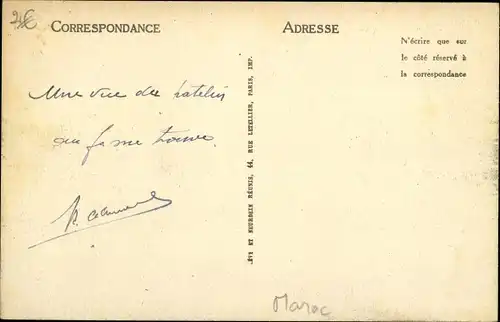 2€
CORRESPONDANCE
ADRESSE
N'écrire que sur
le côté réservé à
la correspondance
Une vue du patelin
ou je me trouve.
LÉVY ET NEURDEIN RÉUNIS, 44, RUE LETELLIER, PARIS, IMP.
Maroc